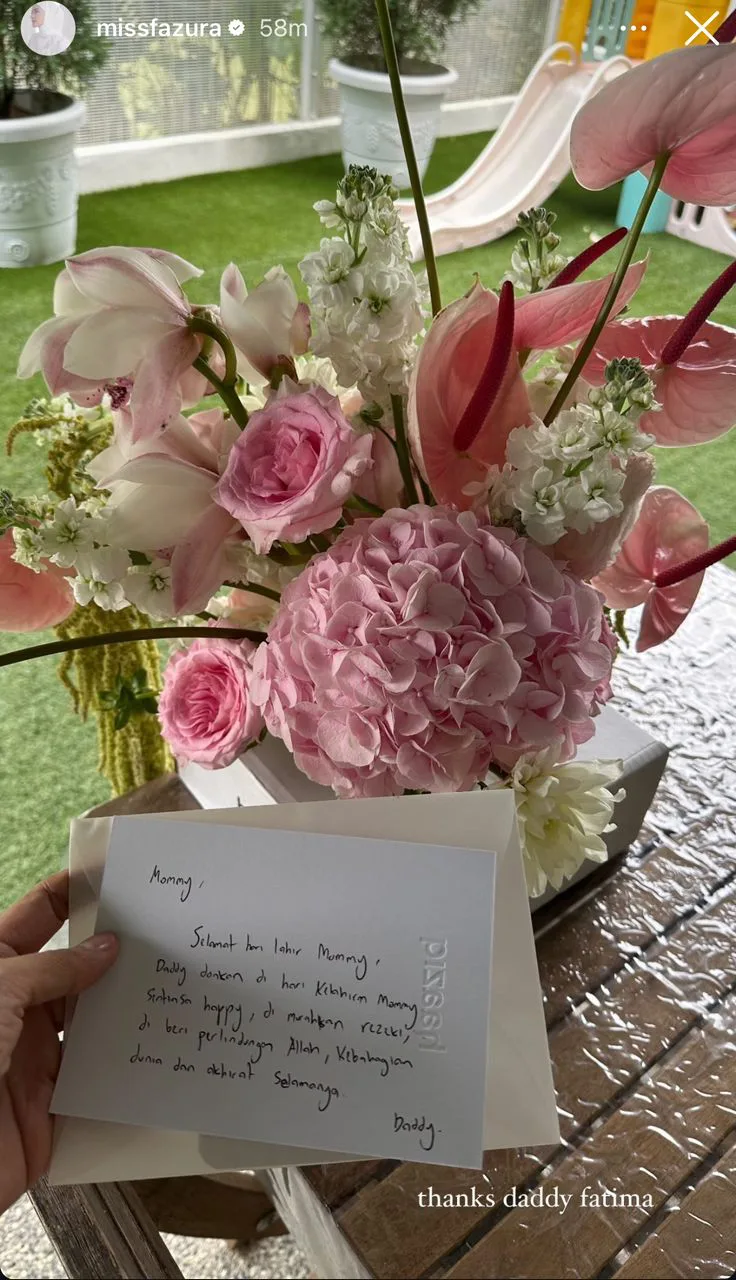 missfazura 58m
Mommy,
Selamat hari lahir Mommy,
Daddy doakan di hari Kelahiran Mommy
sentiasa happy, di murahkan rezeki,
di beri perlindungan Allah, Kebahagian
dunia dan akhirat Selamanya.
Daddy.
thanks daddy fatima